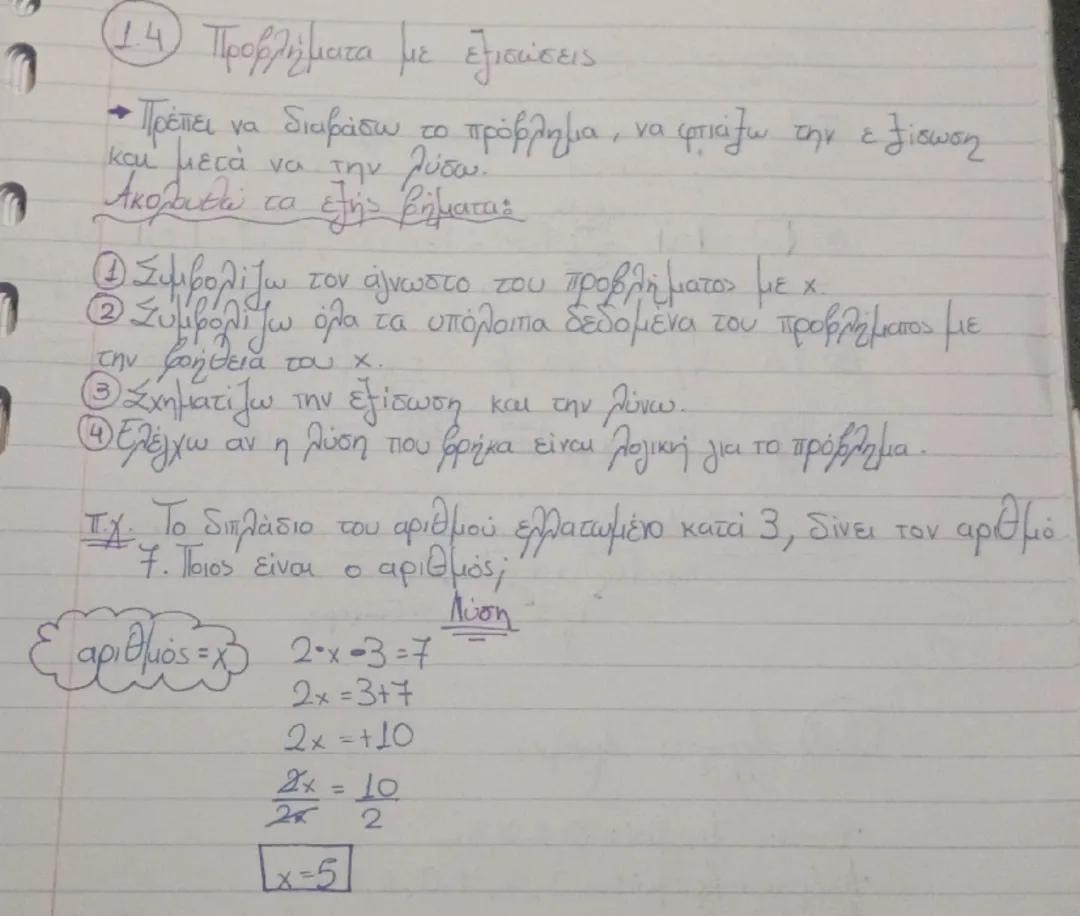 1.4 Προβλήματα με εξισώσεις
→ Πρέπει να διαβάσω το πρόβλημα, να φτιάξω την εξίσωση
και μετά να την λύσω.
Ακολουθώ τα εξής βήματα:
① Συμβολίζω τον άγνωστο του προβλήματος με x.
② Συμβολίζω όλα τα υπόλοιπα δεδομένα του προβλήματος με
την βοήθεια του x.
③ Σχηματίζω την εξίσωση και την λύνω.
④ Ελέγχω αν η λύση που βρήκα είναι λογική για το πρόβλημα.
π.χ. Το διπλάσιο του αριθμού ελλατωμένο κατά 3, δίνει τον αριθμό
7. Ποιος είναι ο αριθμός;
Λύση
αριθμός = x
2·x-3=7
2x=3+7
2x=+10
2x/2x = 10/2
x=5